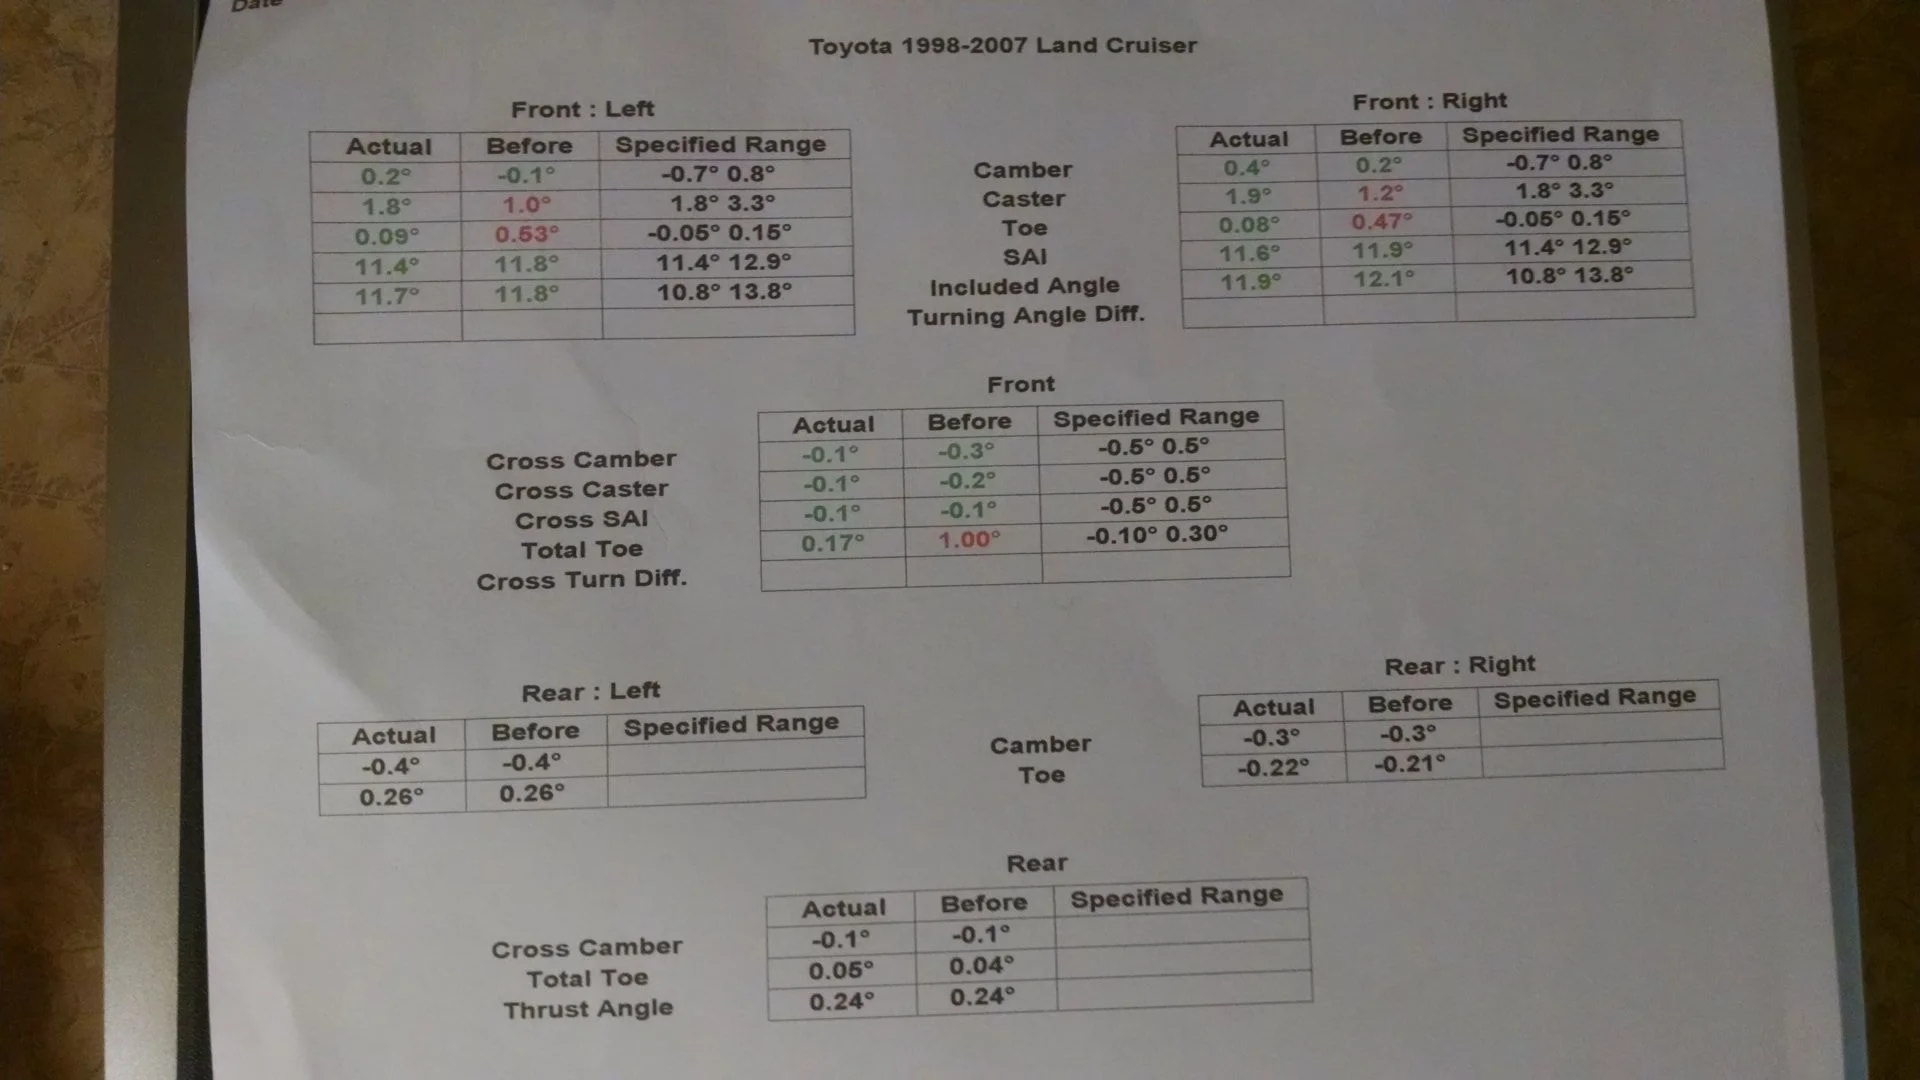 Date
Toyota 1998-2007 Land Cruiser
Front : Left
Actual Before Specified Range
0.2° -0.1° -0.7° 0.8°
1.8° 1.0° 1.8° 3.3°
0.09° 0.53° -0.05° 0.15°
11.4° 11.8° 11.4° 12.9°
11.7° 11.8° 10.8° 13.8°
Camber
Caster
Toe
SAI
Included Angle
Turning Angle Diff.
Front : Right
Actual Before Specified Range
0.4° 0.2° -0.7° 0.8°
1.9° 1.2° 1.8° 3.3°
0.08° 0.47° -0.05° 0.15°
11.6° 11.9° 11.4° 12.9°
11.9° 12.1° 10.8° 13.8°
Front
Actual Before Specified Range
Cross Camber -0.1° -0.3° -0.5° 0.5°
Cross Caster -0.1° -0.2° -0.5° 0.5°
Cross SAI -0.1° -0.1° -0.5° 0.5°
Total Toe 0.17° 1.00° -0.10° 0.30°
Cross Turn Diff.
Rear : Left
Actual Before Specified Range
-0.4° -0.4°
0.26° 0.26°
Camber
Toe
Rear : Right
Actual Before Specified Range
-0.3° -0.3°
-0.22° -0.21°
Rear
Actual Before Specified Range
Cross Camber -0.1° -0.1°
Total Toe 0.05° 0.04°
Thrust Angle 0.24° 0.24°